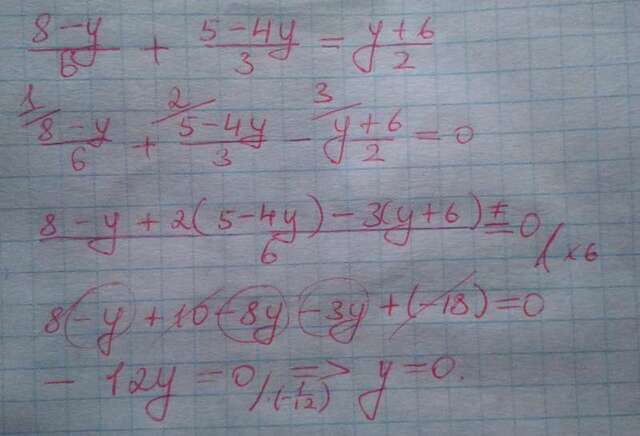 (8-y)/6 + (5-4y)/3 = (y+6)/2
1/ (8-y)/6 + 2/ (5-4y)/3 - 3/ (y+6)/2 = 0
(8-y+2(5-4y)-3(y+6))/6 = 0 /×6
8-y+10-8y-3y+(-18)=0
-12y=0/·(-1/12) => y=0.